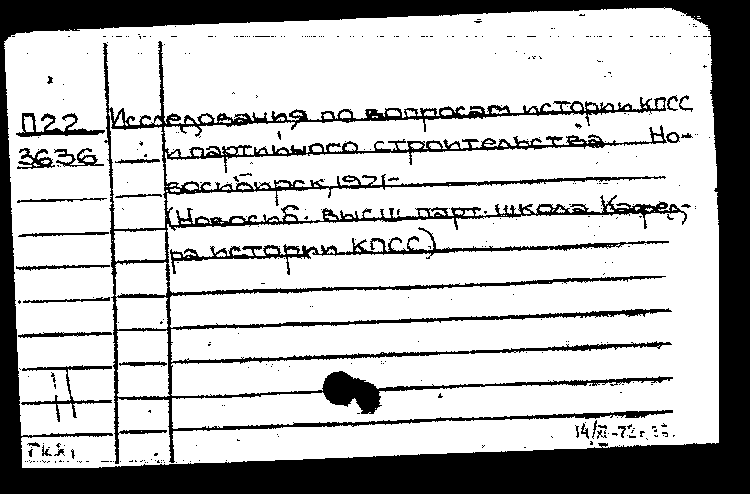 П22 Исследования по вопросам истории КПСС
3636 и партийного строительства. Но-
восибирск, 1971-
(Новосиб. высш. парт. школа. Кафед-
ра истории КПСС)
14/XI-72г.